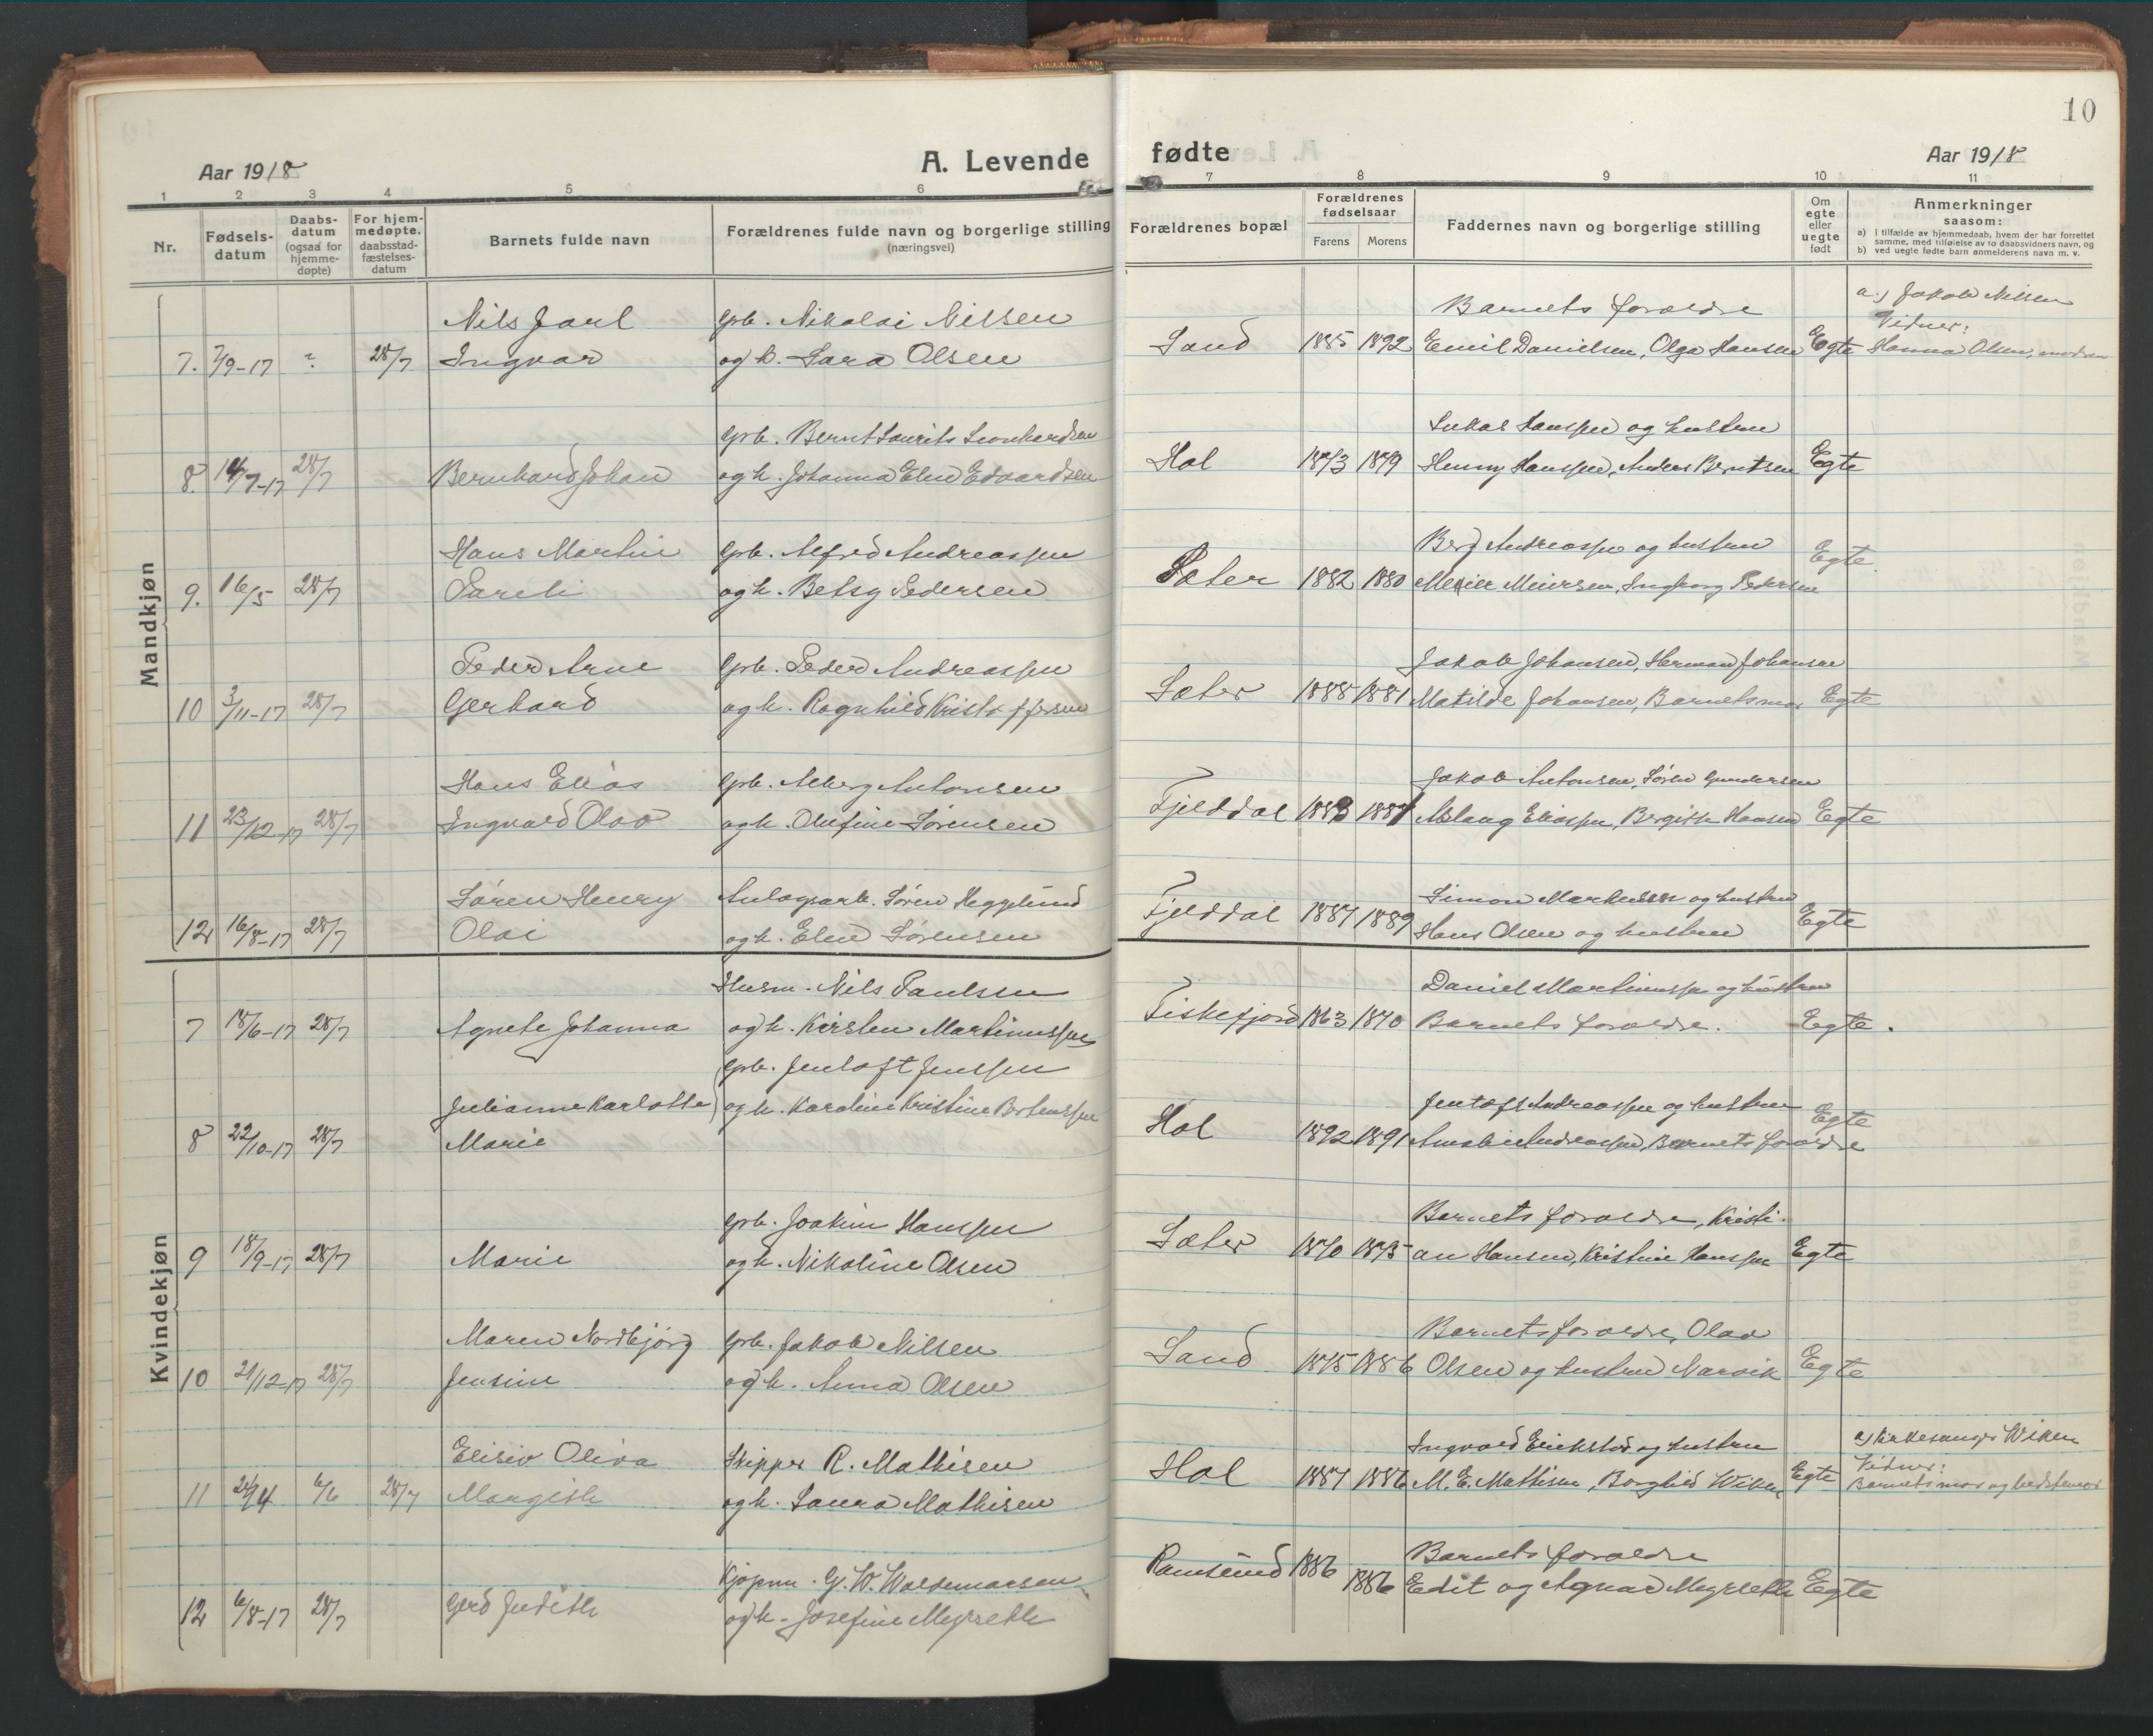 10
Aar 1918
A. Levende
fødte
Aar 1918
1 2 3 4 5 6 7 8 9 10 11
Nr.
Fødsels-
datum
Daabs-
datum
(ogsaa for
hjemme-
døpte)
For hjem-
medøpte.
daabsstad-
fæstelses-
datum
Barnets fulde navn
Forældrenes fulde navn og borgerlige stilling
(næringsvei)
Forældrenes bopæl
Forældrenes
fødselsaar
Farens Morens
Faddernes navn og borgerlige stilling
Om
egte
eller
uegte
født
Anmerkninger
saasom:
a) i tilfælde av hjemmedaab, hvem der har forrettet
samme, med tilføielse av to daabsvidners navn, og
b) ved uegte fødte barn anmelderens navn m. v.
Mandkjøn
Nils Jarl Grb. Nikolai Nilsen Barnets foraldre a.) Jakob Nilsen
Vidner:
7. 7/9-17 ? 28/7 Ingvar og h. Sara Olsen Sand 1885 1892 Emil Danielsen, Olga Hansen Egte Hanna Olsen,
Grb. Bernt Laurits Leonhardsen Lukas Hanssen og hustru
8. 14/7-17 28/7 Bernhard Johan og h. Johanna Elen Edvardsen Hol 1873 1879 Henny Hanssen, Anders Berntsen Egte
Hans Martin Grb. Alfred Andreassen Berg Andreassen og hustru
9. 16/5 28/7 Sareli og h. Betsy Pedersen Sæter 1882 1880 Meier Meiersen, Ingborg Pedersen Egte
Peder Arne Grb. Peder Andreassen Jakob Johansen, Herman Johansen
10 3/11-17 28/7 Gerhard og h. Ragnhild Kristoffersen Sæter 1888 1881 Matilde Johansen, Barnets mor Egte
Hans Elias Grb. Alberg Antonsen Jakob Antonsen, Søren Gundersen
11 23/12-17 28/7 Ingvald Olav og h. Olufine Sørensen Fjelddal 1883 1887 Aslaug Eliassen, Bergitte Hansen Egte
Søren Henry Anlægsarb. Søren Heggelund Simon Markussen og hustru
12 16/8-17 28/7 Olai og h. Elen Sørensen Fjelddal 1887 1889 Hans Olsen og hustru Egte
Kvindekjøn
Husm. Nils Paulsen Daniel Martinussen og hustru
7 18/6-17 28/7 Agnete Johanna og h. Kirsten Martinussen Fiskefjord 1863 1870 Barnets foraldre. Egte.
Grb. Jentoft Jenssen
Julianne Karlotte og h. Karoline Kristine Bertenssen Jentoft Andreassen og hustru
8 22/10-17 28/7 Marie Hol 1892 1891 Amalie Andreassen, Barnets foraldre Egte
Grb. Joakim Hanssen Barnets foraldre, Kristi-
9 18/9-17 28/7 Marie og h. Nikoline Olsen Sæter 1870 1875 an Hansen, Kristine Hanssen Egte
Maren Nordbjörg Grb. Jakob Nilsen Barnets foraldre, Olav
10 21/12-17 28/7 Jensine og h. Anna Olsen Sand 1875 1886 Olsen og hustru Narvik Egte
Elisiv Oliva Skipper R. Mathisen Ingvald Erikstad og hustru a) kirkesanger Wiken
Vidner:
11 24/4 6/6 28/7 Margith og h. Laura Mathisen Hol 1887 1886 M. E. Mathisen, Borghild Wiken Egte Barnets mor og bedstemor
Kjøpm. G. W. Waldemarsen Barnets foraldre
12 6/8-17 28/7 Gerd Judith og h. Josefine Myrseth Ramsund 1886 1886 Edit og Agnar Myrseth Egte